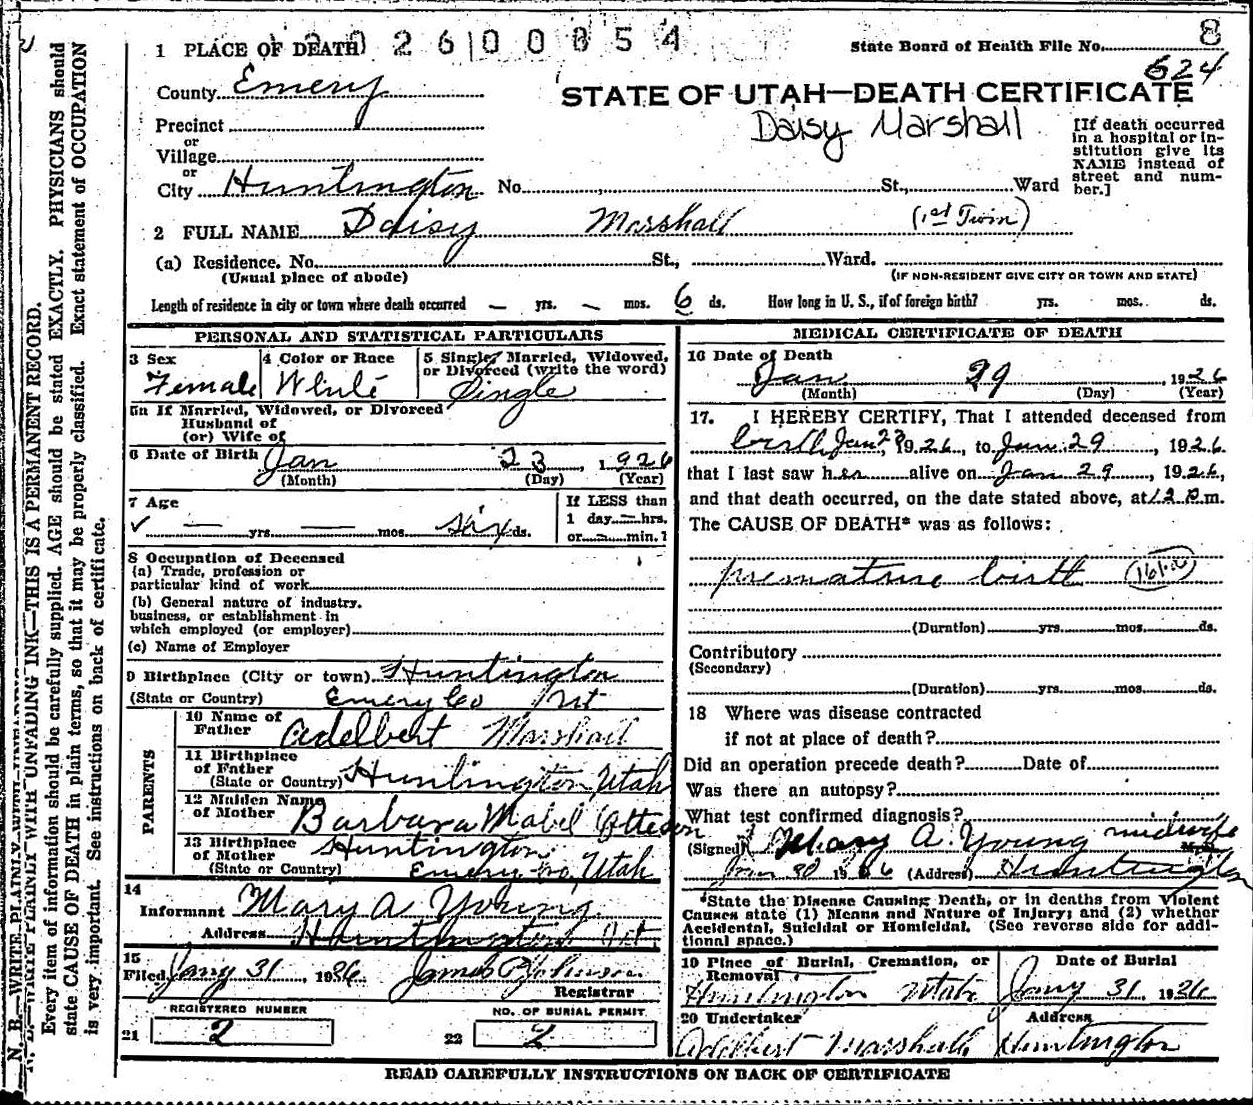 1 PLACE OF DEATH 2 6 0 0 0 5 4
State Board of Health File No. 8
624
County Emery
STATE OF UTAH—DEATH CERTIFICATE
Daisy Marshall
Precinct
or
Village
or
City Huntington No. St., Ward
[If death occurred
in a hospital or in-
stitution give its
NAME instead of
street and num-
ber.]
2 FULL NAME Daisy Marshall (1st Twin)
(a) Residence. No. St., Ward.
(Usual place of abode) (IF NON-RESIDENT GIVE CITY OR TOWN AND STATE)
Length of residence in city or town where death occurred — yrs. — mos. 6 ds. How long in U. S., if of foreign birth? yrs. mos. ds.
PERSONAL AND STATISTICAL PARTICULARS
3 Sex
Female
4 Color or Race
White
5 Single, Married, Widowed,
or Divorced (write the word)
Single
5a If Married, Widowed, or Divorced
Husband of
(or) Wife of
6 Date of Birth Jan 23, 1926
(Month) (Day) (Year)
7 Age
✓ — yrs. — mos. six ds.
If LESS than
1 day — hrs.
or — min.?
8 Occupation of Deceased
(a) Trade, profession or
particular kind of work
(b) General nature of industry,
business, or establishment in
which employed (or employer)
(c) Name of Employer
9 Birthplace (City or town) Huntington
(State or Country) Emery Co Ut
PARENTS
10 Name of
Father Adelbert Marshall
11 Birthplace
of Father
(State or Country) Huntington, Utah
12 Maiden Name
of Mother Barbara Mabel
13 Birthplace
of Mother
(State or Country) Huntington
Emery Co, Utah
14
Informant Mary A Young
Address Huntington Ut
15
Filed Jany 31 1926 James P Johnson
Registrar
REGISTERED NUMBER
21 2
NO. OF BURIAL PERMIT
22 2
MEDICAL CERTIFICATE OF DEATH
16 Date of Death
Jan 29, 1926
(Month) (Day) (Year)
17. I HEREBY CERTIFY, That I attended deceased from
birth Jan 23, 1926, to Jan 29, 1926
that I last saw her alive on Jan 29, 1926,
and that death occurred, on the date stated above, at 12 P.m.
The CAUSE OF DEATH* was as follows:
premature birth
(Duration) yrs. mos. ds.
Contributory
(Secondary)
(Duration) yrs. mos. ds.
18 Where was disease contracted
if not at place of death?
Did an operation precede death? Date of
Was there an autopsy?
What test confirmed diagnosis?
(Signed) Mary A. Young midwife M.D.
Jan 30 1926 (Address) Huntington
*State the Disease Causing Death, or in deaths from Violent
Causes state (1) Means and Nature of Injury; and (2) whether
Accidental, Suicidal or Homicidal. (See reverse side for addi-
tional space.)
19 Place of Burial, Cremation, or
Removal
Huntington Utah
Date of Burial
Jany 31 1926
20 Undertaker
Adelbert Marshall
Address
Huntington
READ CAREFULLY INSTRUCTIONS ON BACK OF CERTIFICATE
N. B.—WRITE PLAINLY WITH UNFADING INK—THIS IS A PERMANENT RECORD.
Every item of information should be carefully supplied. AGE should be stated EXACTLY. PHYSICIANS should
state CAUSE OF DEATH in plain terms, so that it may be properly classified. Exact statement of OCCUPATION
is very important. See instructions on back of certificate.